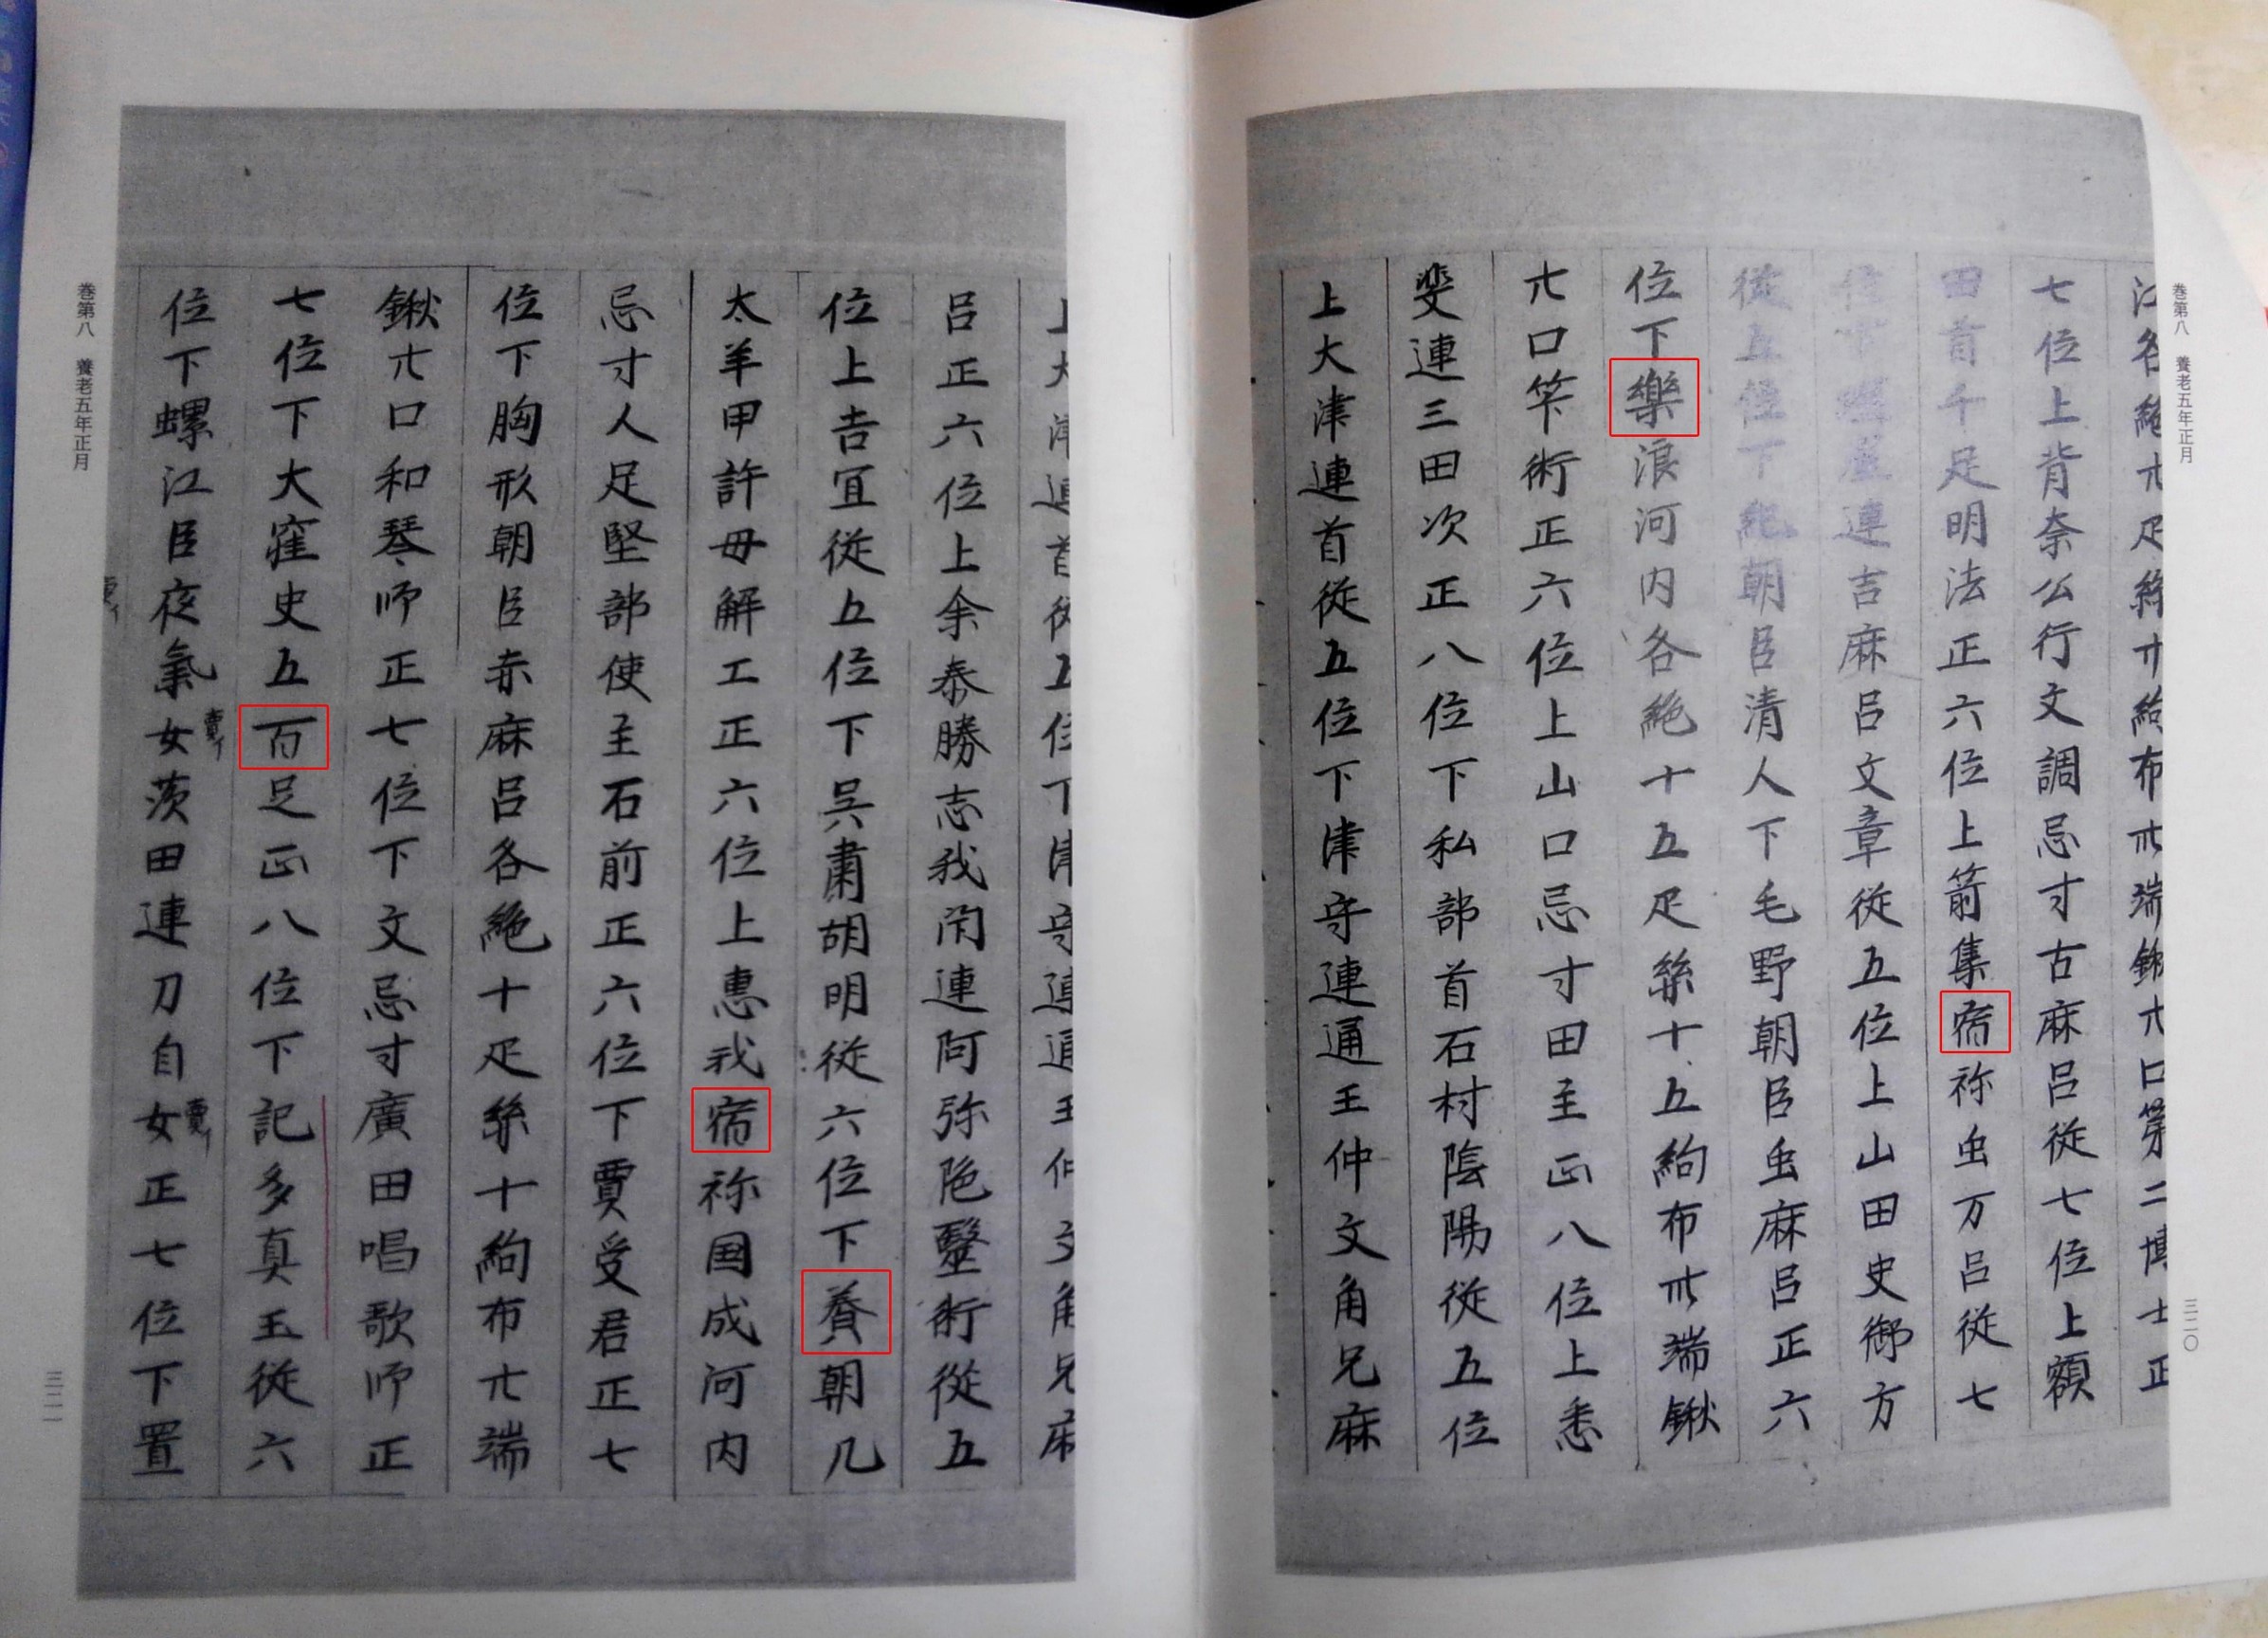 巻第八　養老五年正月
江各絁廿疋絲廿絇布卅端鍬廿口第二博士正
七位上背奈公行文調忌寸古麻呂従七位上額
田首千足明法正六位上箭集宿祢虫万呂従七
位下塩屋連吉麻呂文章従五位上山田史御方
従五位下紀朝臣清人下毛野朝臣虫麻呂正六
位下樂浪河内各絁十五疋絲十五絇布卅端鍬
廿口笇術正六位上山口忌寸田主正八位上悉
斐連三田次正八位下私部首石村陰陽従五位
上大津連首従五位下津守連通王仲文角兄麻
三二〇
上大津連首従五位下津守連通王仲文角兄麻
呂正六位上余泰勝志我閇連阿弥陁毉術従五
位上吉冝従五位下呉肅胡明従六位下養朝几
太羊甲許母解工正六位上惠我宿祢国成河内
忌寸人足堅部使主石前正六位下賈受君正七
位下胸形朝臣赤麻呂各絁十疋絲十絇布廿端
鍬廿口和琴師正七位下文忌寸廣田唱歌師正
七位下大窪史五百足正八位下記多真玉従六
位下螺江臣夜氣女賣イ茨田連刀自女賣イ正七位下置
賣イ
巻第八　養老五年正月
三二一